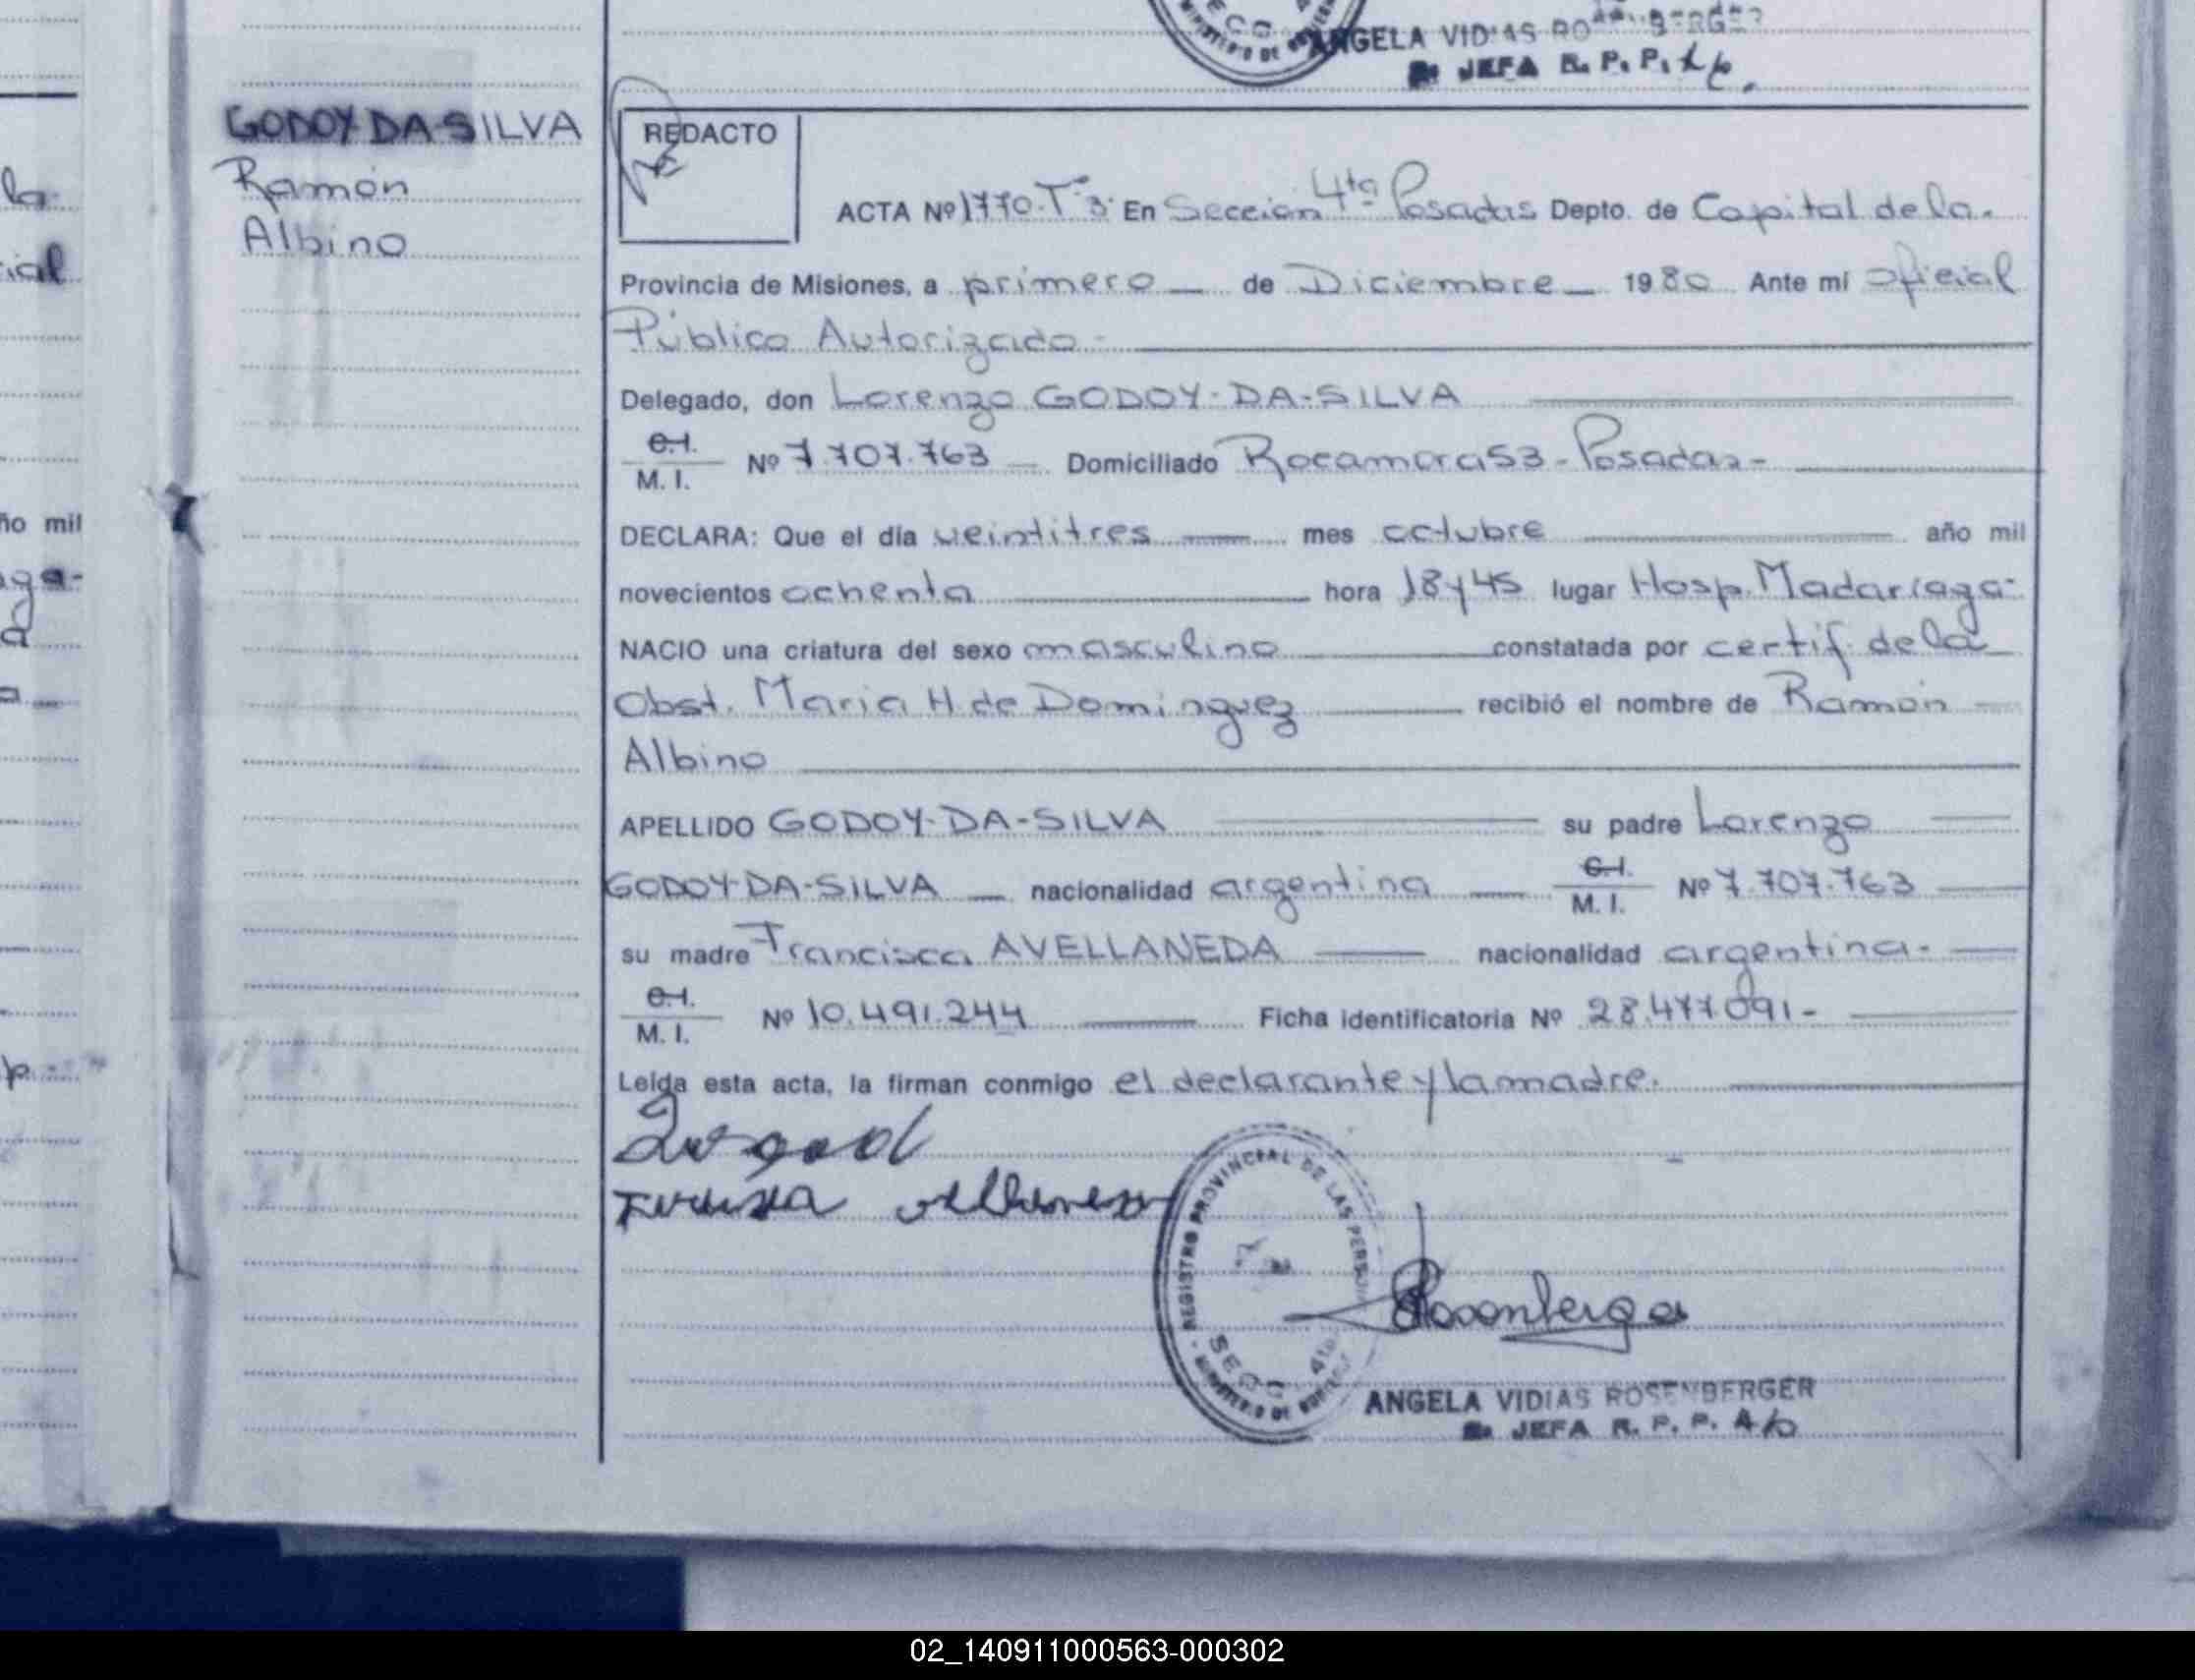 ANGELA VIDIAS
JEFA R. P. P.
GODOY-DA-SILVA
Ramón
Albino
REDACTO
ACTA Nº 1770-Tº3º En Sección 4ta Posadas Depto. de Capital de la
Provincia de Misiones, a primero de Diciembre 1980 Ante mí Oficial
Público Autorizado
Delegado, don Lorenzo GODOY-DA-SILVA
C.I.
M. I. Nº 7.707.763 Domiciliado Rocamora 53 - Posadas-
DECLARA: Que el día veintitres mes octubre año mil
novecientos ochenta hora 18y45 lugar Hosp. Madariaga-
NACIO una criatura del sexo masculino constatada por certif. de la
Obst. Maria H de Dominguez recibió el nombre de Ramón
Albino
APELLIDO GODOY-DA-SILVA su padre Lorenzo
GODOY-DA-SILVA nacionalidad argentina C.I. M. I. Nº 7.707.763
su madre Francisca AVELLANEDA nacionalidad argentina-
C.I.
M. I. Nº 10.491.244 Ficha identificatoria Nº 28.477.091-
Leída esta acta, la firman conmigo el declarante y la madre.
REGISTRO PROVINCIAL DE LAS PERSONAS
SECC. 4ta
MINISTERIO DE
ANGELA VIDIAS ROSENBERGER
JEFA R. P. P.
la
ial
ño mil
02_140911000563-000302